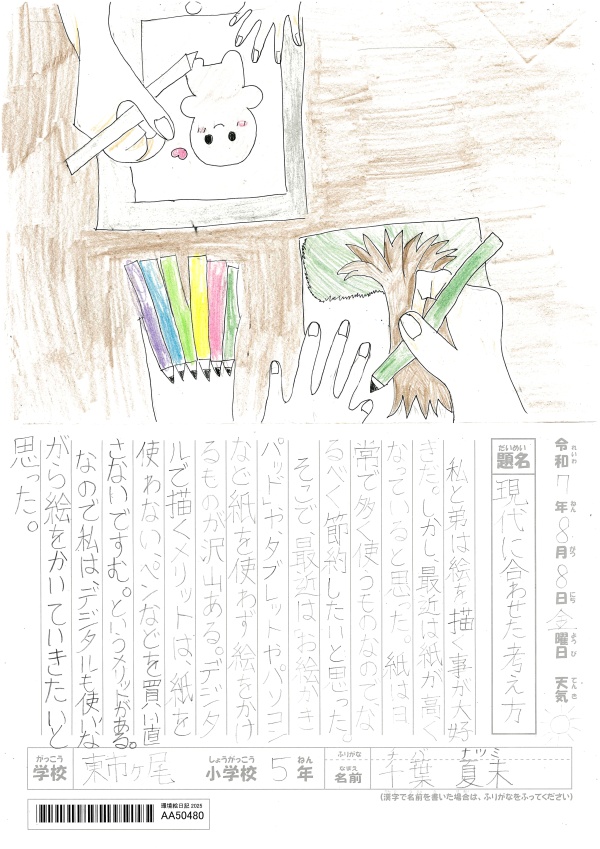 令和7年8月8日金曜日 天気
れいわ ねん がつ にち ようび てんき
題名 現代に合わせた考え方
だいめい
私と弟は絵を描く事が大好
きだ。しかし、最近は紙が高く
なっていると思った。紙は日
常で多く使うものなので、な
るべく節約したいと思った。
そこで、最近はお絵かき
パッドや、タブレットやパソコン
など紙を使わず絵をかけ
るものが沢山ある。デジタ
ルで描くメリットは、紙を
使わない、ペンなどを買い直
さないですむ。というメリットがある。
なので私は、デジタルも使いな
がら絵をかいていきたいと
思った。
がっこう しょうがっこう ねん
学校 東市ヶ尾 小学校 5年
ふりがな チバ ナツミ
なまえ
名前 千葉 夏未
(漢字で名前を書いた場合は、ふりがなをふってください)
環境絵日記 2025
AA50480